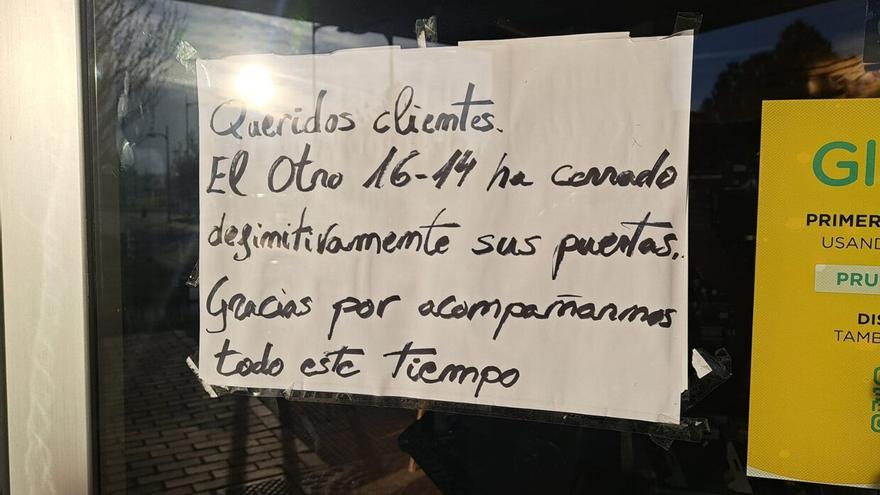 Queridos clientes.
El Otro 16-14 ha cerrado
definitivamente sus puertas.
Gracias por acompañarnos
todo este tiempo
Gl
PRIMER
USAND
PRU
DIS
TAMB